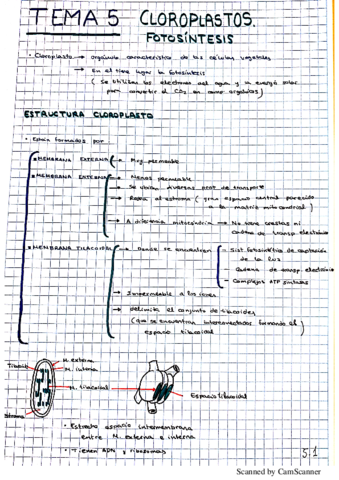 TEMA 5 CLOROPLASTOS.
FOTOSÍNTESIS
· Cloroplasto → orgánulo característico de las células vegetales
→ En él tiene lugar la fotosíntesis
( Se utilizan los electrones del agua y la energía solar
para convertir el CO2 en comp. orgánicos)
ESTRUCTURA CLOROPLASTO
· Están formados por
· MEMBRANA EXTERNA → Muy permeable
· MEMBRANA → Menos permeable
→ Se ubican diversas prot de transporte
→ Rodea al estroma ( gran espacio central parecido
a la matriz mitocondrial )
→ A diferencia mitocondria → No tiene crestas ni
cadena de transp. electrónico
· MEMBRANA TILACOIDAL → Donde se encuentran
- Sist fotosintético de captación
de la luz
- Cadena de transp. electrónico
- Complejos ATP sintasa
→ Impermeable a los iones
→ Delimita el conjunto de tilacoides
( que se encuentran interconectados formando el )
espacio tilacoidal
M. externa
M. interna
M. tilacoidal
Espacio tilacoidal
Stroma
espacio intermembrana
entre M. externa e interna
· Tienen ADN y ribosomas
5.1
Scanned by CamScanner